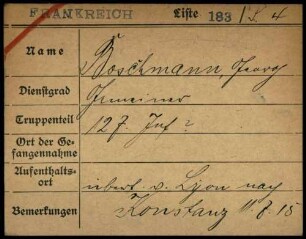 FRANKREICH Liste 183 / S. 4
Name Boschmann, Georg
Dienstgrad Gemeiner
Truppenteil 127. Inf ?
Ort der Ge-
fangennahme
Aufenthalts-
ort
überf. v. Lyon nach
Bemerkungen Konstanz 11.7.15